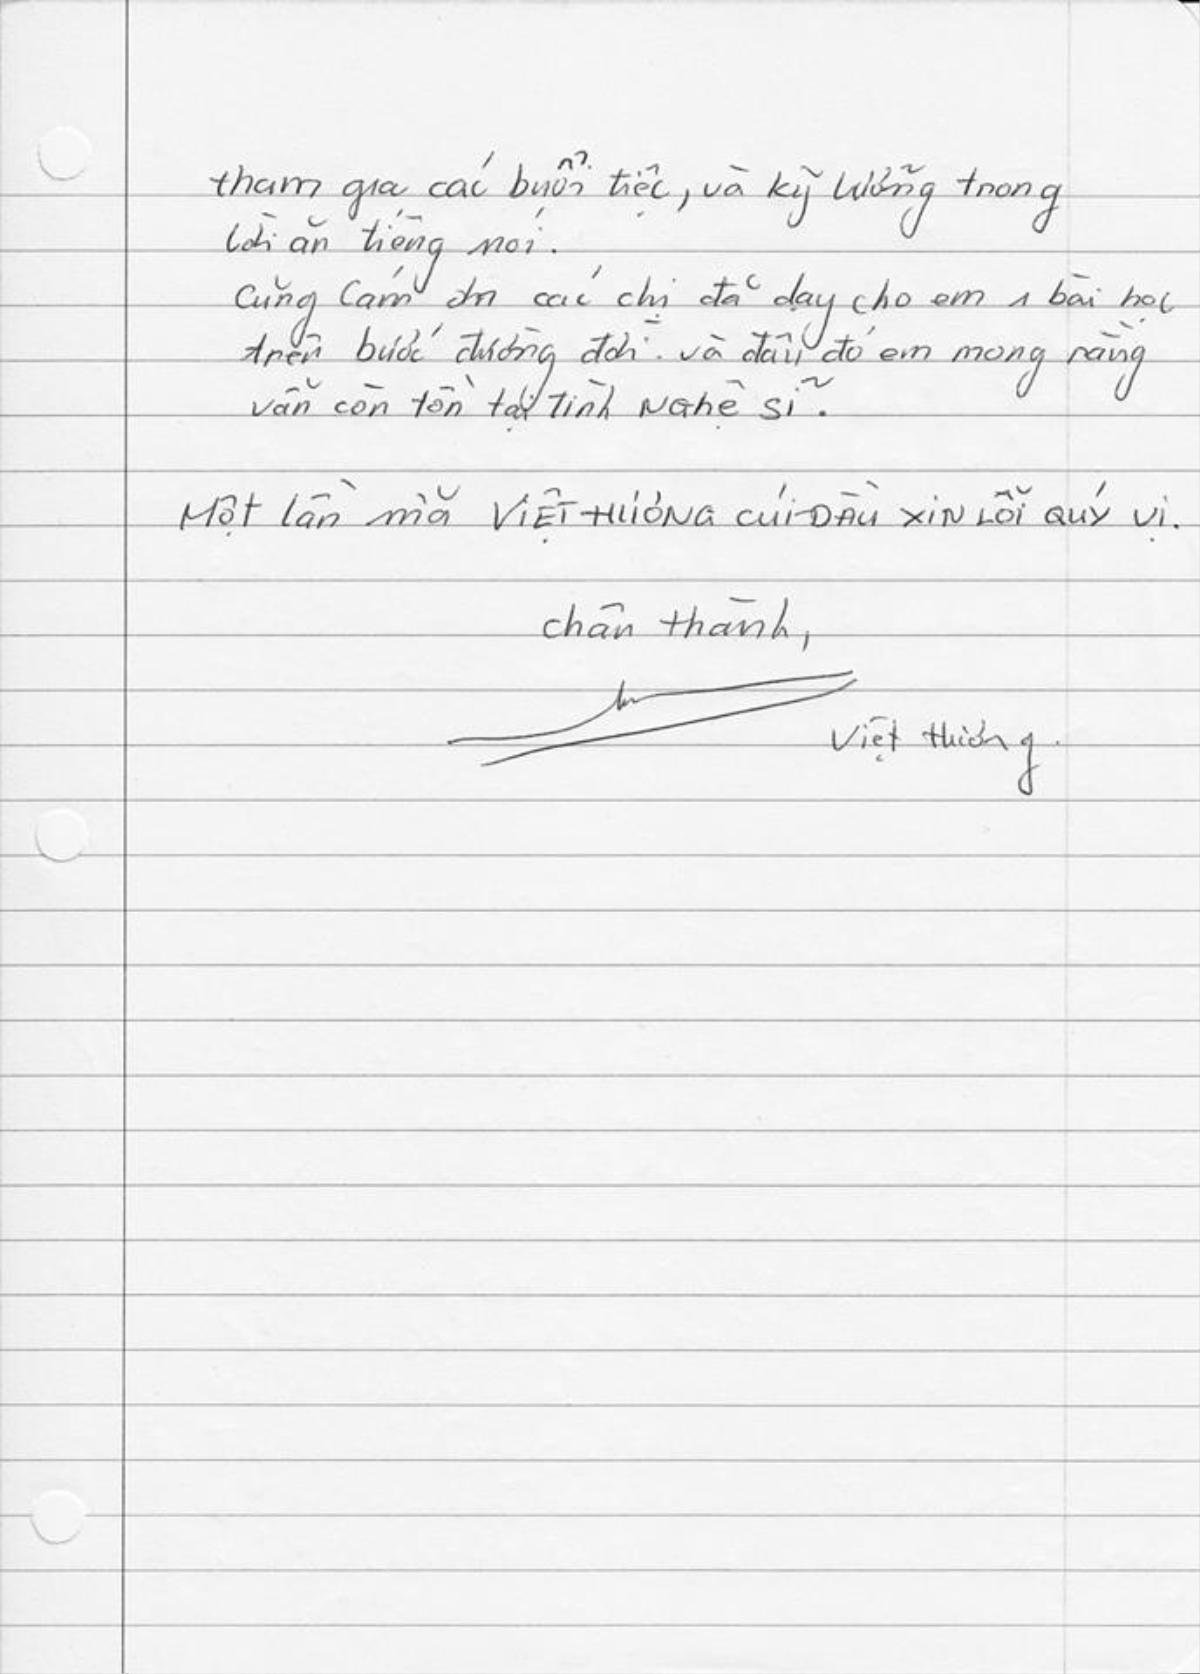 tham gia các buổi tiệc, và kỹ lưỡng trong
lời ăn tiếng nói.
Cũng Cám ơn các chị đã dạy cho em 1 bài học
trên bước đường đời. và đâu đó em mong rằng
vẫn còn tồn tại Tình Nghệ sĩ.
Một lần nữa VIỆT HƯƠNG CÚI ĐẦU XIN LỖI QUÝ VỊ.
chân thành,
Việt Hương.